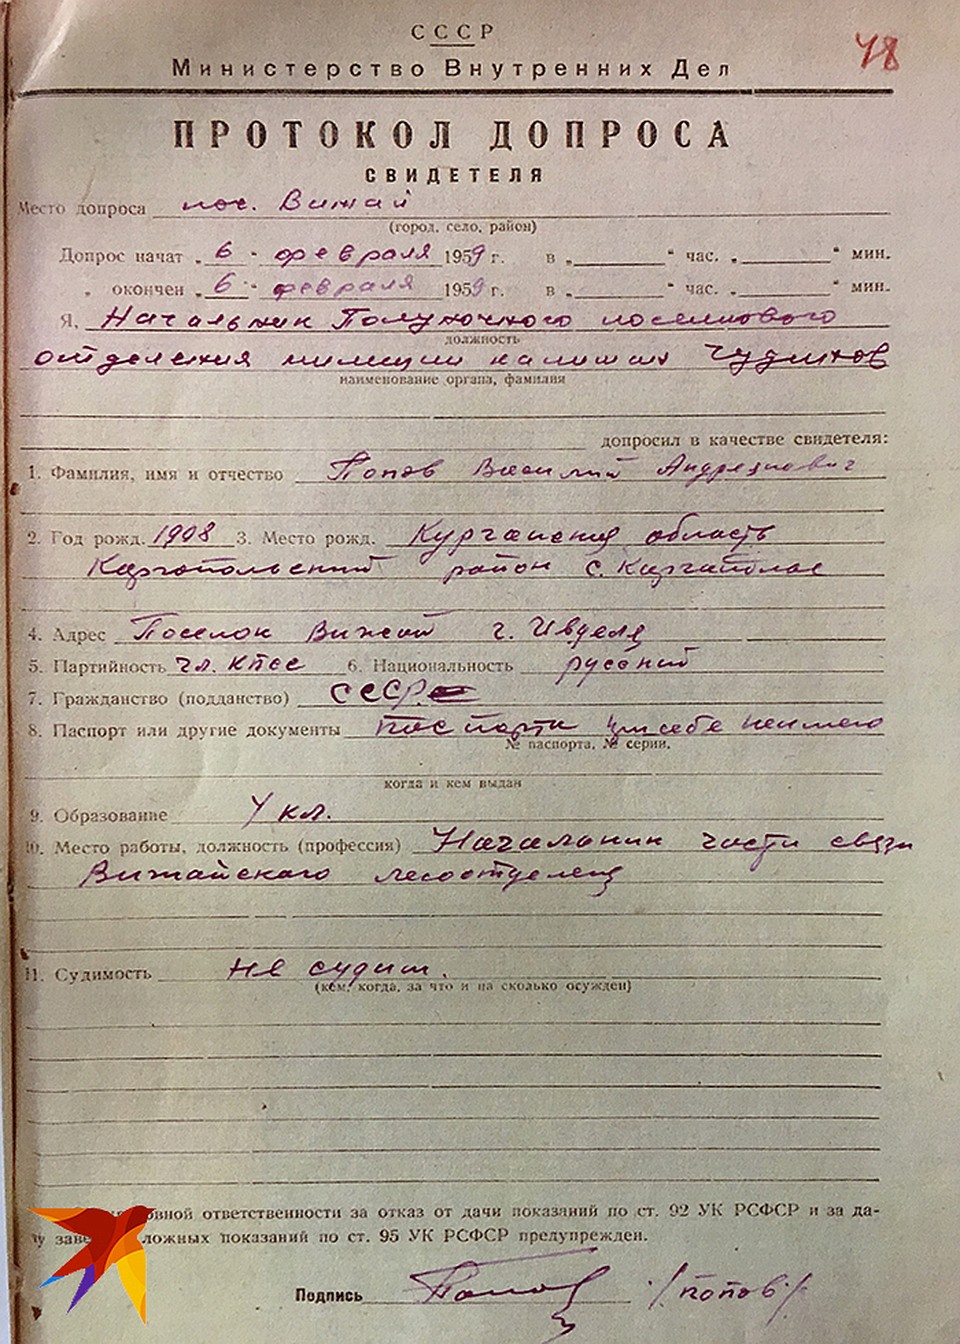 СССР
48
Министерство Внутренних Дел
ПРОТОКОЛ ДОПРОСА
СВИДЕТЕЛЯ
Место допроса пос. Вижай
(город, село, район)
Допрос начат „ 6 " февраля 1959 г. в „ " час. „ " мин.
„ окончен „ 6 " февраля 1959 г. в „ " час. „ " мин.
Я, Начальник Полуночного поселкового
должность
отделения милиции капитан Чудинов
наименование органа, фамилия
допросил в качестве свидетеля:
1. Фамилия, имя и отчество Попов Василий Андреянович
2. Год рожд. 1908 3. Место рожд. Курганская область
Каргопольский район с. Каргаполье
4. Адрес Поселок Вижай г. Ивделя
5. Партийность чл. КПСС 6. Национальность русский
7. Гражданство (подданство) СССР
8. Паспорт или другие документы паспорта при себе неимею
№ паспорта, № серии,
когда и кем выдан
9. Образование 4 кл.
10. Место работы, должность (профессия) Начальник части связи
Вижайского лесоотделен
11. Судимость не судим.
(кем, когда, за что и на сколько осужден)
ответственности за отказ от дачи показаний по ст. 92 УК РСФСР и за да-
ложных показаний по ст. 95 УК РСФСР предупрежден.
Подпись Попов /попов/